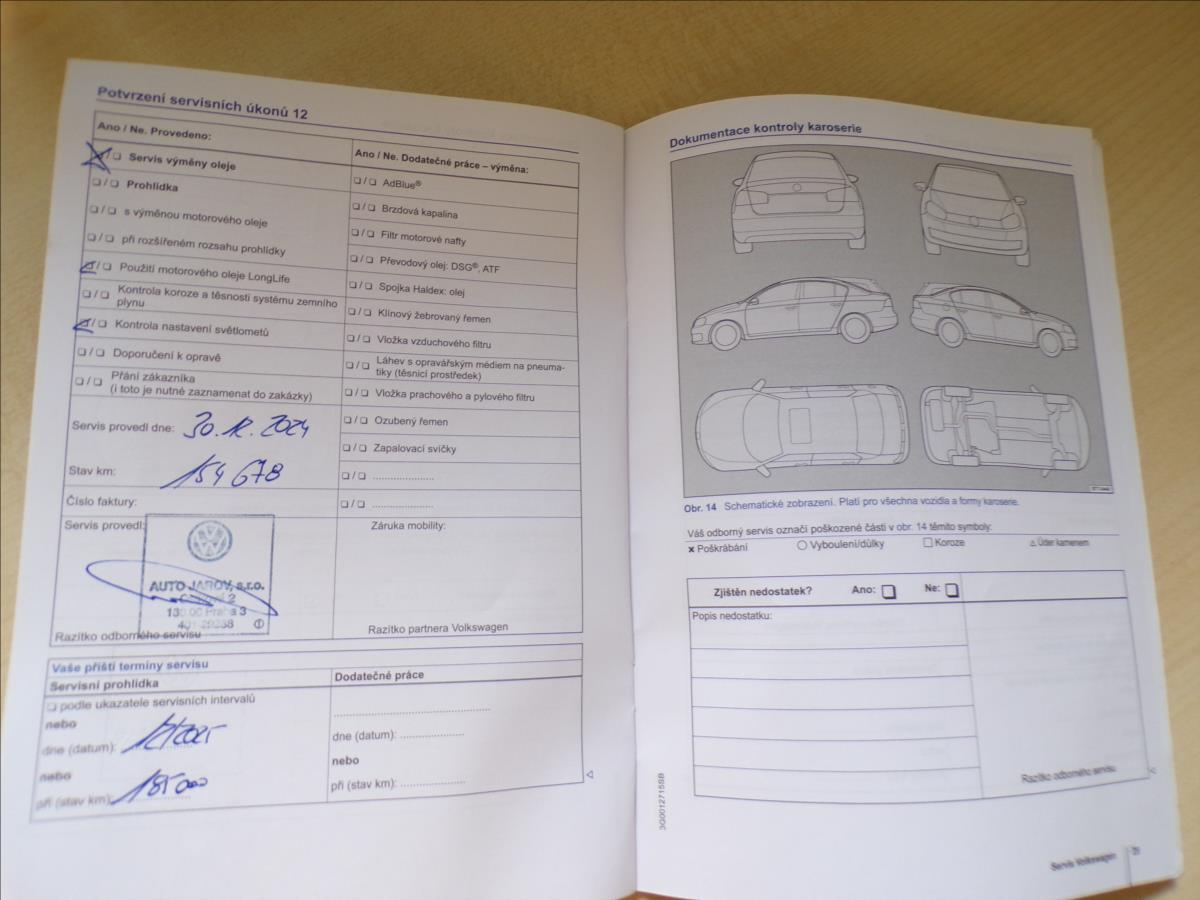 Potvrzení servisních úkonů 12
Ano / Ne. Provedeno:
❏/❏ Servis výměny oleje
❏/❏ Prohlídka
❏/❏ s výměnou motorového oleje
❏/❏ při rozšířeném rozsahu prohlídky
❏/❏ Použití motorového oleje LongLife
❏/❏ Kontrola koroze a těsnosti systému zemního
plynu
❏/❏ Kontrola nastavení světlometů
❏/❏ Doporučení k opravě
❏/❏ Přání zákazníka
(i toto je nutné zaznamenat do zakázky)
Servis provedl dne: 30.12.2024
Stav km: 154 678
Číslo faktury:
Servis provedl:
AUTO JAROV, s.r.o.
130 00 Praha 3
Razítko odborného servisu
Ano / Ne. Dodatečné práce – výměna:
❏/❏ AdBlue®
❏/❏ Brzdová kapalina
❏/❏ Filtr motorové nafty
❏/❏ Převodový olej: DSG®, ATF
❏/❏ Spojka Haldex: olej
❏/❏ Klínový žebrovaný řemen
❏/❏ Vložka vzduchového filtru
❏/❏ Láhev s opravářským médiem na pneuma-
tiky (těsnicí prostředek)
❏/❏ Vložka prachového a pylového filtru
❏/❏ Ozubený řemen
❏/❏ Zapalovací svíčky
❏/❏ ....................
❏/❏ ....................
Záruka mobility:
Razítko partnera Volkswagen
Vaše příští termíny servisu
Servisní prohlídka
❏ podle ukazatele servisních intervalů
nebo
dne (datum): 12/2025
nebo
při (stav km): 185 000
Dodatečné práce
dne (datum): ....................
nebo
při (stav km): ....................
Dokumentace kontroly karoserie
Obr. 14 Schematické zobrazení. Platí pro všechna vozidla a formy karoserie.
Váš odborný servis označí poškozené části v obr. 14 těmito symboly:
× Poškrábání ○ Vyboulení/důlky □ Koroze △ Úder kamenem
Zjištěn nedostatek? Ano: ❏ Ne: ❏
Popis nedostatku:
Razítko odborného servisu
3G0012715SB
Servis Volkswagen